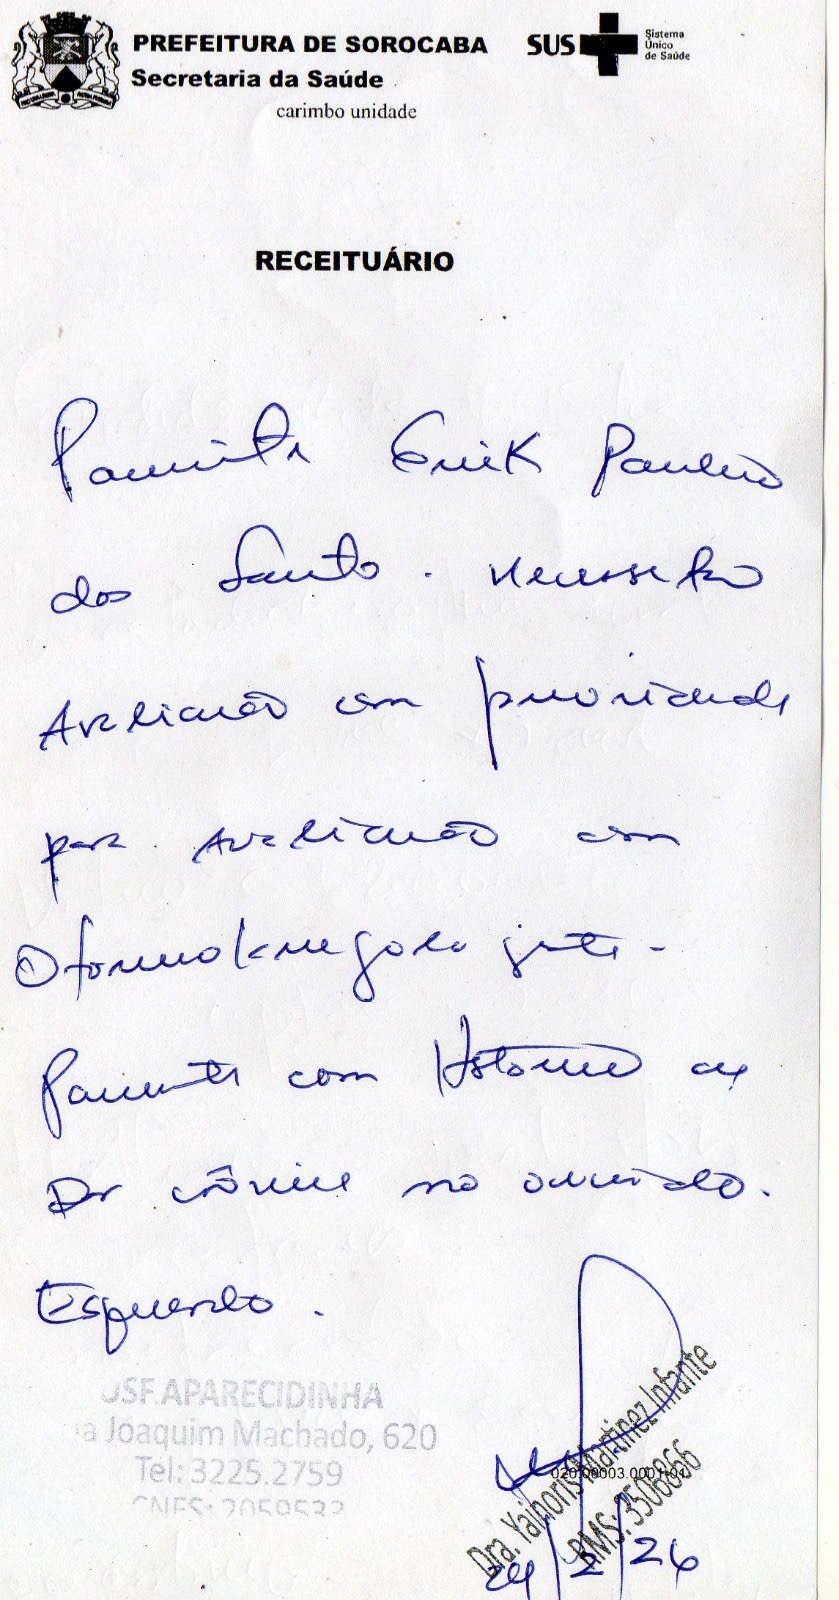 PREFEITURA DE SOROCABA
Secretaria da Saúde
carimbo unidade
SUS
Sistema
Único
de Saúde
RECEITUÁRIO
Paciente Erik Paulino
dos Santo. Necessito
Avaliação com prioridade
para avaliação com
Otorrinolaringologista -
Paciente com História de
Dor crônica no ouvido.
Esquerdo.
USF APARECIDINHA
a Joaquim Machado, 620
Tel: 3225.2759
CNES: 2059533
020.00003.0001-04
Dra. Yainoris Martinez Infante
RMS: 3506866
24/2/26